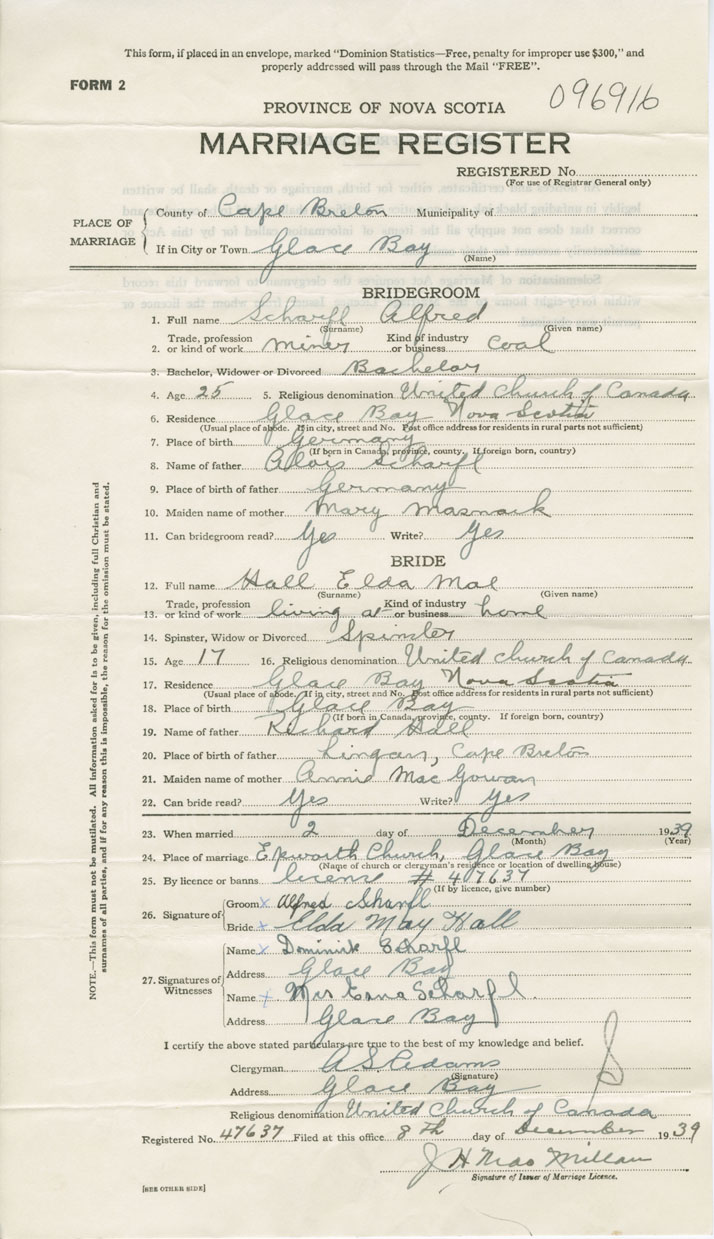 This form, if placed in an envelope, marked "Dominion Statistics—Free, penalty for improper use $300," and
properly addressed will pass through the Mail "FREE".
FORM 2
096916
PROVINCE OF NOVA SCOTIA
MARRIAGE REGISTER
REGISTERED No.
(For use of Registrar General only)
PLACE OF MARRIAGE
County of Cape Breton Municipality of
If in City or Town Glace Bay
(Name)
BRIDEGROOM
1. Full name Scharfl Alfred
(Surname) (Given name)
2. Trade, profession or kind of work miner Kind of industry or business coal
3. Bachelor, Widower or Divorced Bachelor
4. Age 25 5. Religious denomination United Church of Canada
6. Residence Glace Bay Nova Scotia
(Usual place of abode. If in city, street and No. Post office address for residents in rural parts not sufficient)
7. Place of birth Germany
(If born in Canada, province, county. If foreign born, country)
8. Name of father Alois Scharfl
9. Place of birth of father Germany
10. Maiden name of mother Mary Masnack
11. Can bridegroom read? Yes Write? Yes
BRIDE
12. Full name Hall Elda Mae
(Surname) (Given name)
13. Trade, profession or kind of work living at Kind of industry or business home
14. Spinster, Widow or Divorced Spinster
15. Age 17 16. Religious denomination United Church of Canada
17. Residence Glace Bay Nova Scotia
(Usual place of abode. If in city, street and No. Post office address for residents in rural parts not sufficient)
18. Place of birth Glace Bay
(If born in Canada, province, county. If foreign born, country)
19. Name of father Richard Hall
20. Place of birth of father Lingan, Cape Breton
21. Maiden name of mother Annie MacGowan
22. Can bride read? Yes Write? Yes
23. When married 2 day of December 1939
(Month) (Year)
24. Place of marriage Epworth Church, Glace Bay
(Name of church or clergyman's residence or location of dwelling house)
25. By licence or banns license # 47637
(If by licence, give number)
26. Signature of
Groom x Alfred Scharfl
Bride x Elda May Hall
27. Signatures of Witnesses
Name x Dominik Scharfl
Address Glace Bay
Name x Mrs Scharfl.
Address Glace Bay
I certify the above stated particulars are true to the best of my knowledge and belief.
Clergyman A S Adams
(Signature)
Address Glace Bay
Religious denomination United Church of Canada
Registered No. 47637 Filed at this office 8th day of December 1939
J H MacMillan
Signature of Issuer of Marriage Licence.
[SEE OTHER SIDE]
NOTE.—This form must not be mutilated. All information asked for is to be given, including full Christian and
surnames of all parties, and if for any reason this is impossible, the reason for the omission must be stated.